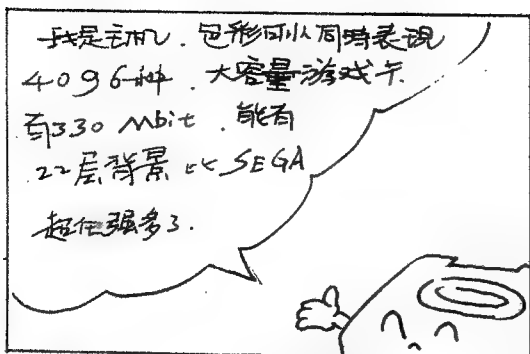 我是主机.色彩可以同時表現
4096种.大容量游戏卡
有330 Mbit.能有
22层背景比SEGA
超任强多了.